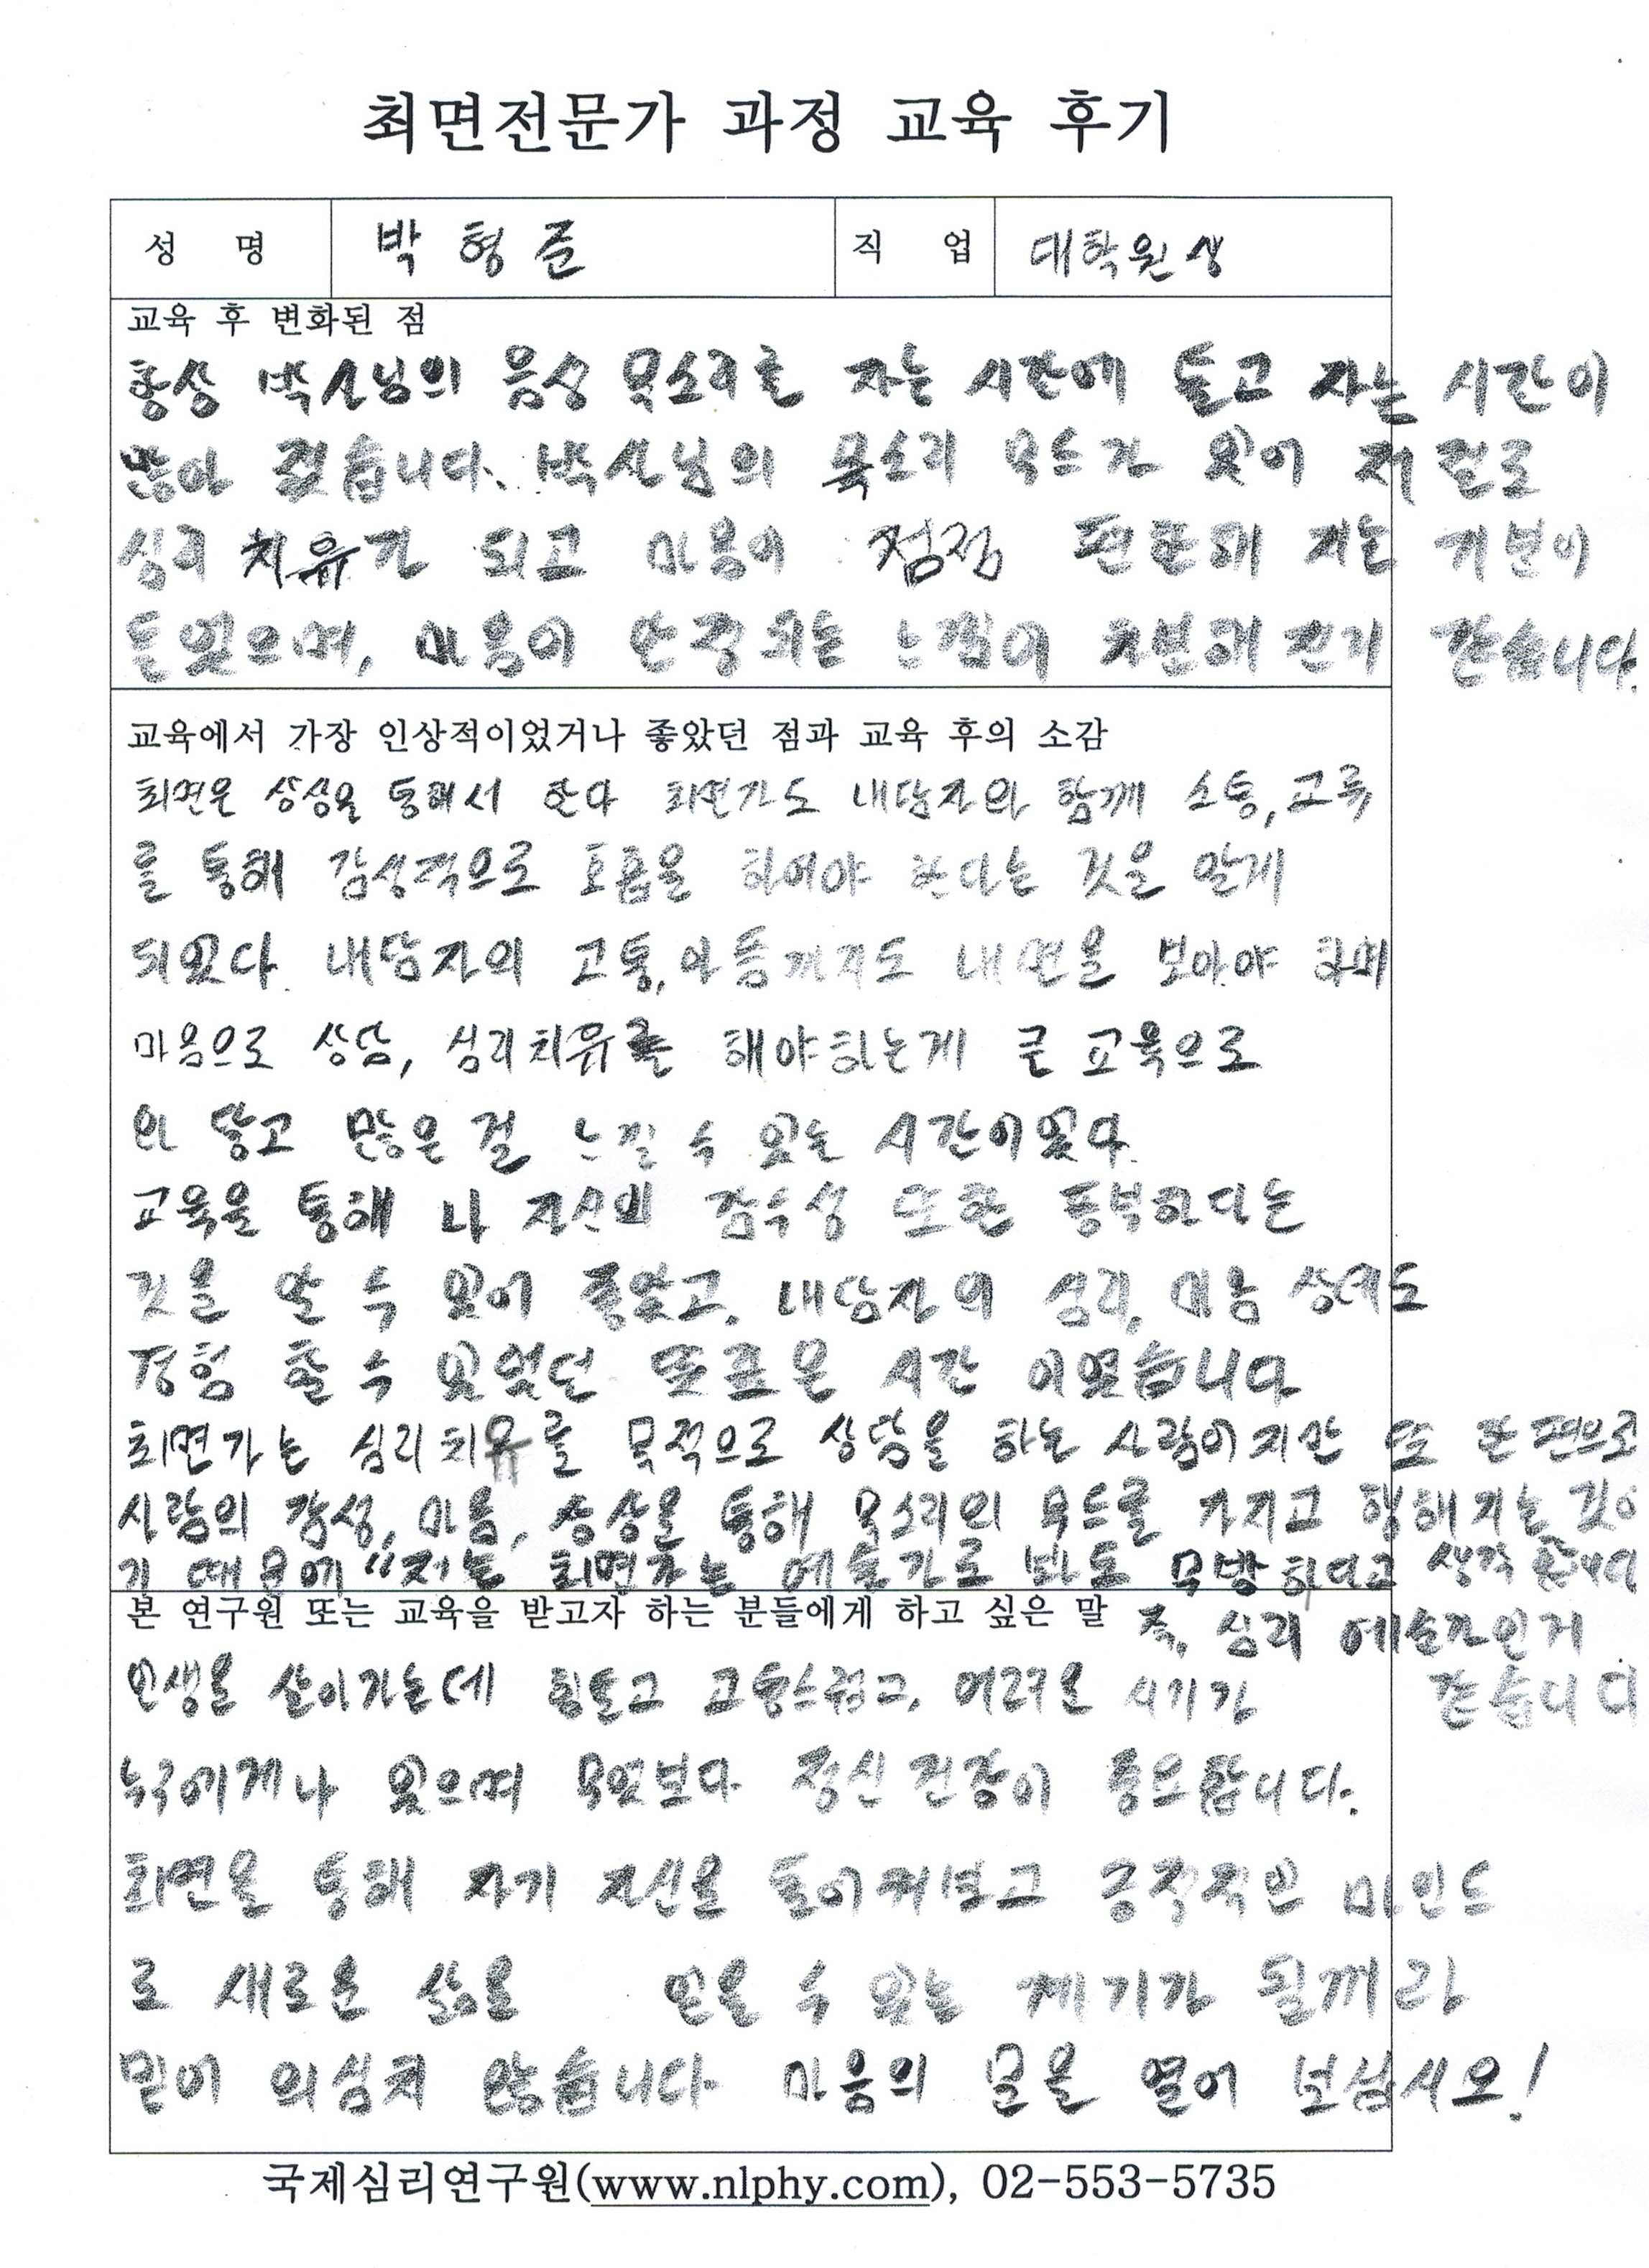 최면전문가 과정 교육 후기
성 명 박형준 직 업 대학원생
교육 후 변화된 점
항상 박사님의 음성 목소리를 자는 시간에 듣고 자는 시간이
많아 졌습니다. 박사님의 목소리 무드가 있어 저 절로
심리 치유가 되고 마음이 점점 편안해 지는 기분이
들었으며, 마음이 안정되는 느낌이 차분해 진거 같습니다.
교육에서 가장 인상적이었거나 좋았던 점과 교육 후의 소감
최면은 상상을 통해서 한다 최면가도 내담자와 함께 소통, 교류
를 통해 감성적으로 호흡을 하여야 한다는 것을 알게
되었다. 내담자의 고통, 아픔까지도 내면을 보아야 하며
마음으로 상담, 심리치유를 해야하는게 큰 교육으로
와 닿고 많은 걸 느낄 수 있는 시간이었다.
교육을 통해 나 자신의 감수성 또한 풍부하다는
것을 알 수 있어 좋았고, 내담자의 심리, 마음 상태도
경험 할 수 있었던 또다른 시간 이였습니다
최면가는 심리치유를 목적으로 상담을 하는 사람이지만 또 한편으로
사람의 감성, 마음, 상상을 통해 목소리의 무드를 가지고 행해지는 것이
기 때문에 "저는 최면가는 예술가로 봐도 무방 하다고 생각 합니다
본 연구원 또는 교육을 받고자 하는 분들에게 하고 싶은 말 즉, 심리 예술가인거
인생을 살아가는데 힘들고 고통스럽고, 어려운 시기가 같습니다
누구에게나 있으며 무엇보다 정신건강이 중요합니다.
최면을 통해 자기 자신을 들여다보고 긍정적인 마인드
로 새로운 삶을 얻을 수 있는 계기가 될꺼라
믿어 의심치 않습니다. 마음의 문을 열어 보십시오!
국제심리연구원(www.nlphy.com), 02-553-5735